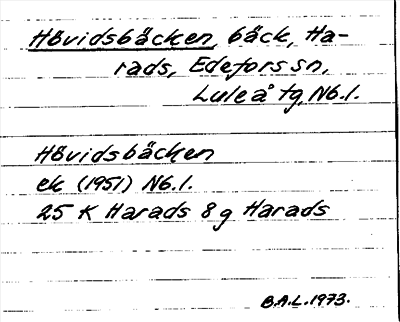 Hövidsbäcken, bäck, Ha-
rads, Edefors sn,
Luleå tg, Nb.l.
Hövidsbäcken
ek (1951) Nb.l.
25 K Harads 8g Harads
B.A.L. 1973.